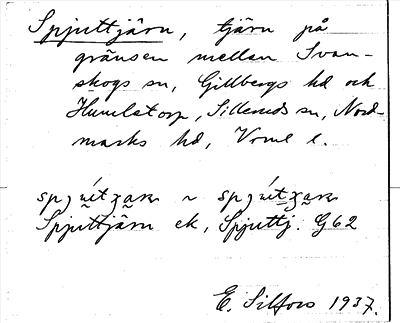 Spjuttjärn, tjärn på
gränsen mellan Svan-
skogs sn, Gillbergs hd och
Humlstorp, Silleruds sn, Nord-
marks hd, Vrml l.
Spjuttjärn ek, Spjuttj. G62
E. Silfors 1937.